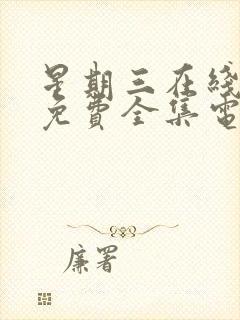 星期三在线
免費全集電
廉署